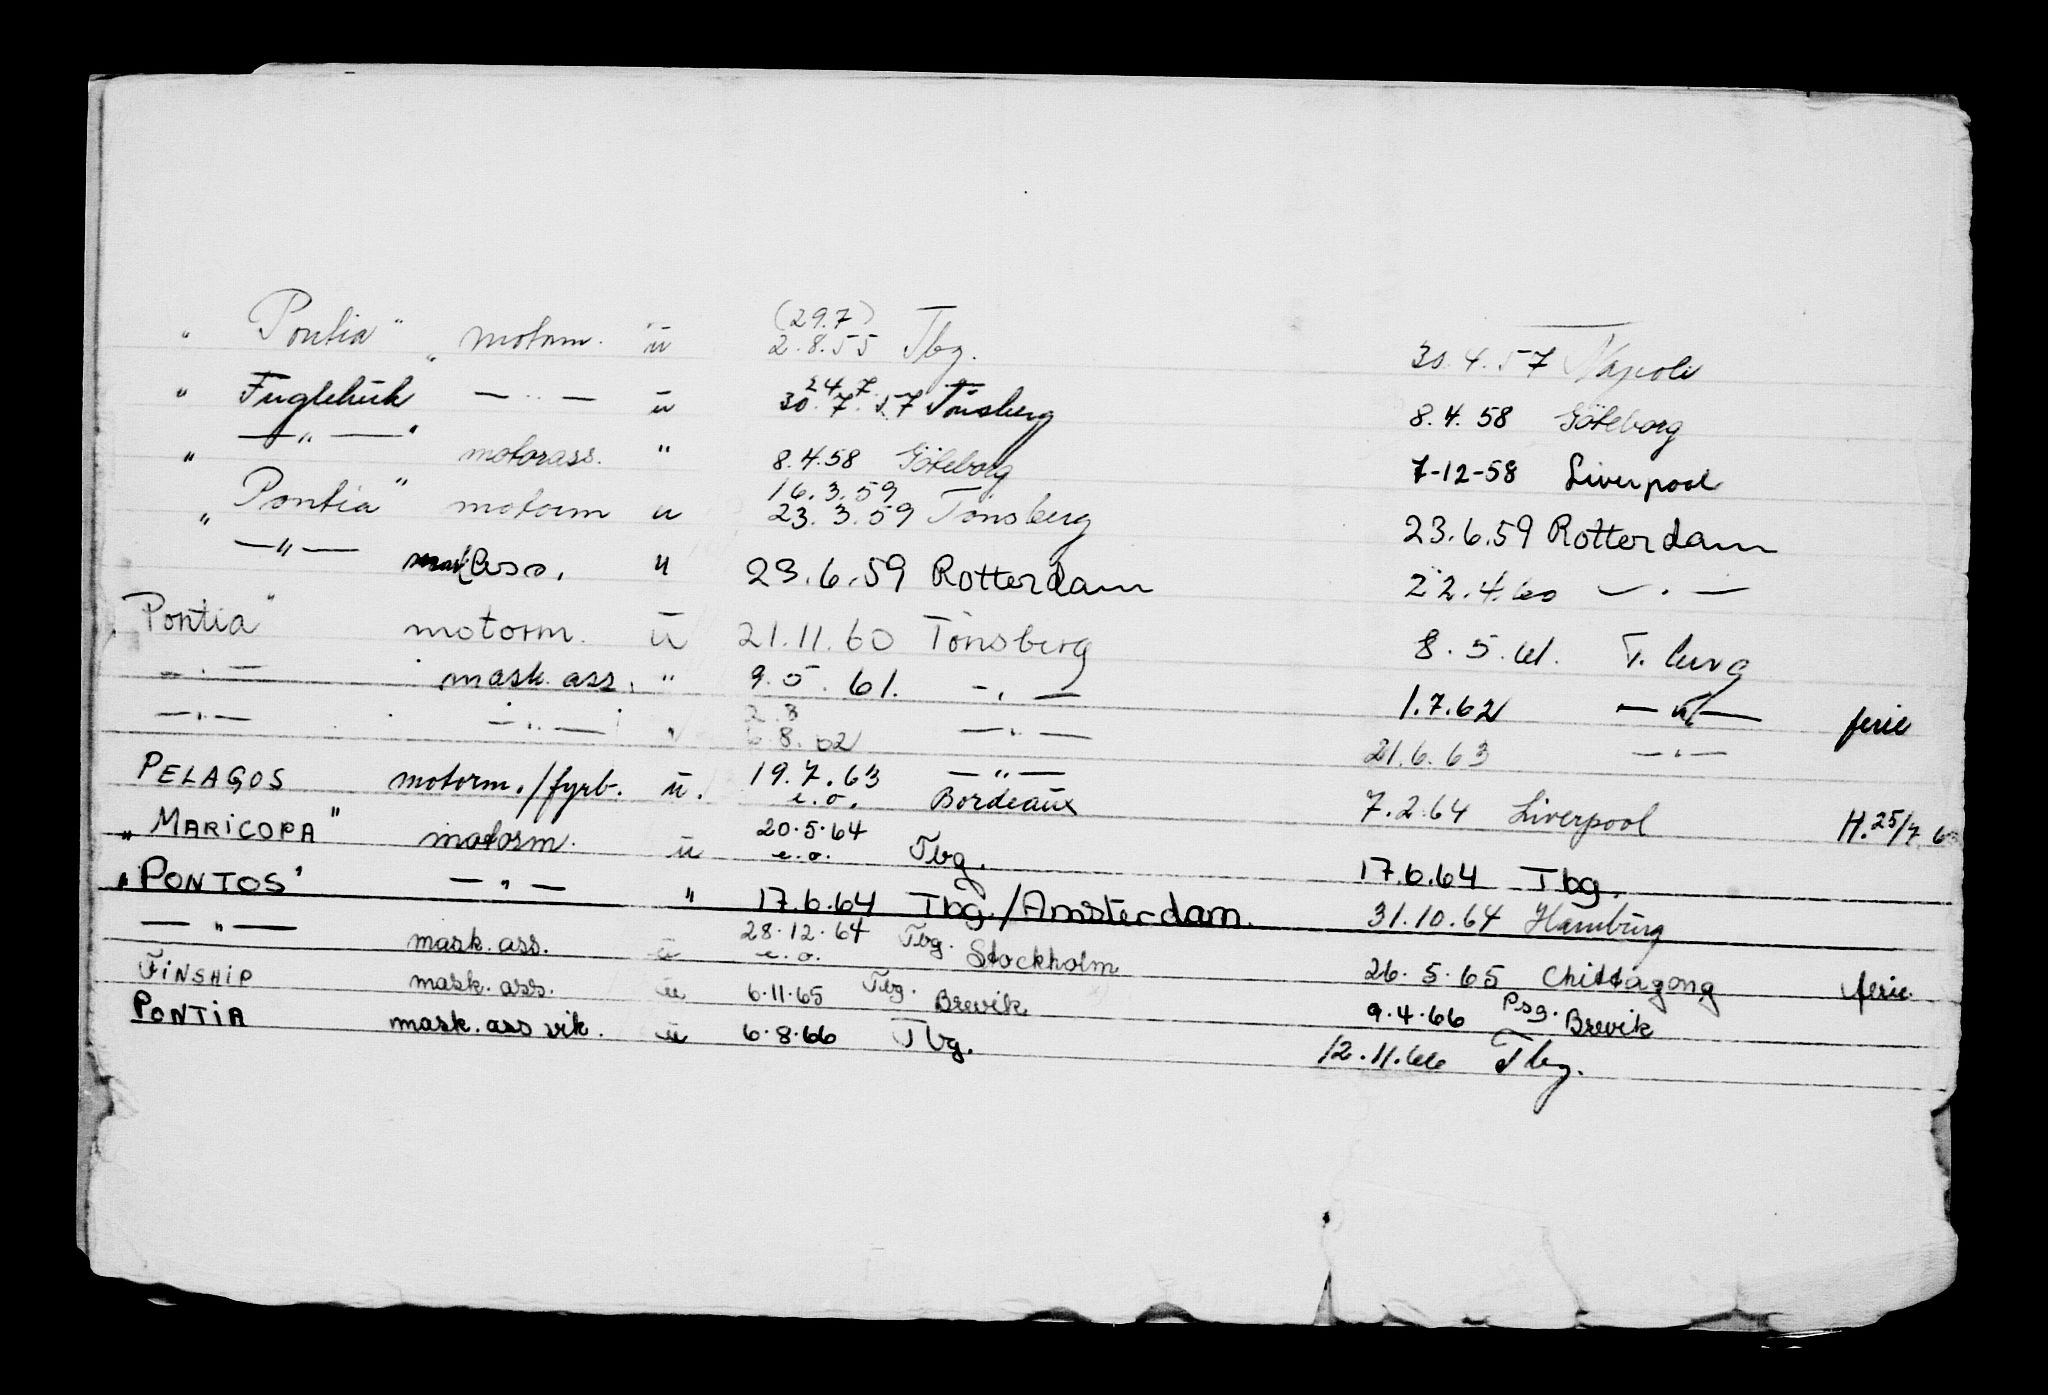 (29.7)
" Pontia" motorm. ū 2.8.55 Tbg. 30.4.57 Napoli
24.7.
" Fuglehuk" — " — ū 30.7.57 Tönsberg 8.4.58 Göteborg
" — " — " motorass. " 8.4.58 Göteborg 7-12-58 Liverpool
16.3.59
" Pontia" motorm u 23.3.59 Tönsberg 23.6.59 Rotterdam
— " — ass. " 23.6.59 Rotterdam 22.4.60 — " —
" Pontia" motorm. ū 21.11.60 Tönsberg 8.5.61. T.berg
— " — mask. ass. " 9.5.61. — " — 1.7.62 — " — ferie
2.8
— " — — " — " 6.8.62 — " — 21.6.63 — " —
PELAGOS motorm./fyrb. ū. 19.7.63 — " —
e.o. Bordeaux 7.2.64 Liverpool H. 25/7 6
"MARICOPA" motorm. ū 20.5.64
e.o. Tbg. 17.6.64 Tbg.
"PONTOS" — " — " 17.6.64 Tbg./Amsterdam. 31.10.64 Hamburg
— " — mask. ass. ū 28.12.64 Tbg.
e.o. Stockholm 26.5.65 Chittagong ferie
FINSHIP mask. ass. ū 6.11.65 Tbg. Brevik 9.4.66 Psg. Brevik
PONTIA mask. ass vik. ū 6.8.66 Tbg. 12.11.66 Tbg.